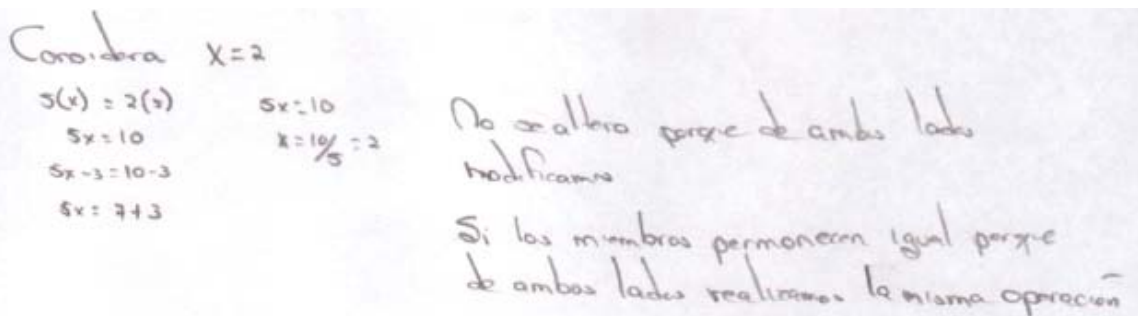 Considera x=2
5(x) = 2(5)
5x=10
5x-3=10-3
5x= 7+3
5x=10
x=10/5=2
No se altera porque de ambos lados
modificamos
Si los miembros permanecen igual porque
de ambos lados realizamos la misma operación